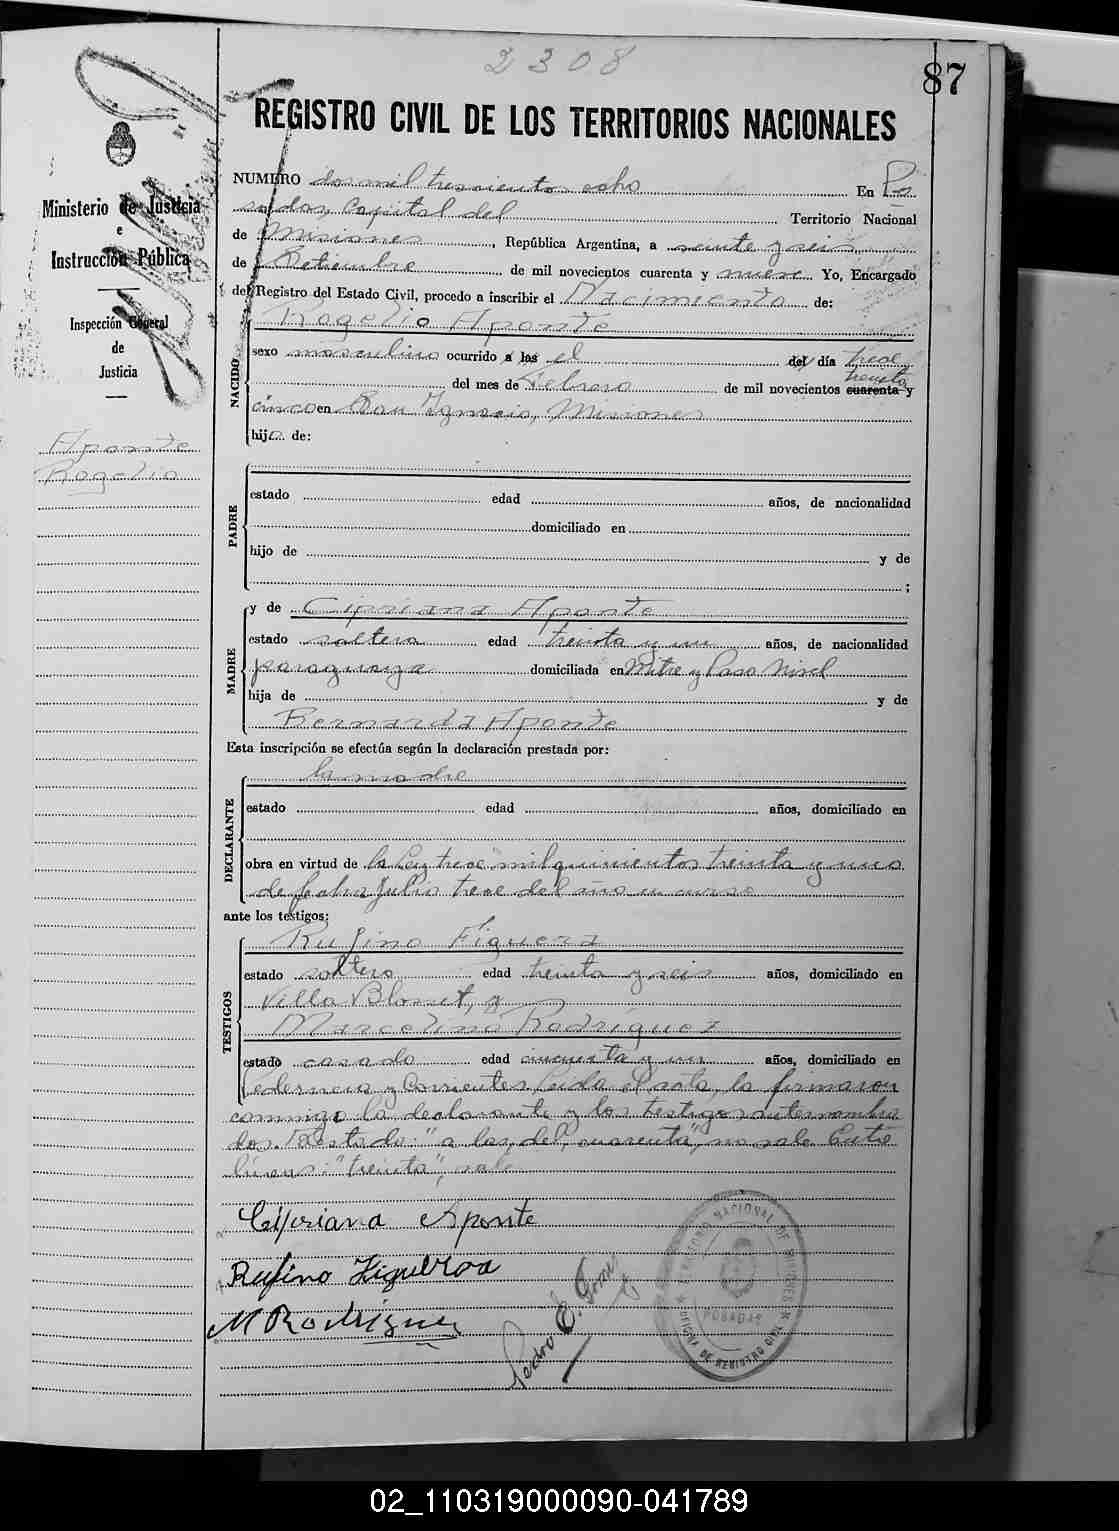 2308
87
REGISTRO CIVIL DE LOS TERRITORIOS NACIONALES
Ministerio de Justicia
e
Instrucción Pública
Inspección General
de
Justicia
Aponte
Rogelio
NUMERO dos mil trescientos ocho En Po
sadas, Capital del Territorio Nacional
de Misiones, República Argentina, a veinte y seis
de Setiembre de mil novecientos cuarenta y nueve Yo, Encargado
del Registro del Estado Civil, procedo a inscribir el Nacimiento de:
NACIDO
Rogelio Aponte
sexo masculino ocurrido a las el del día trece
treinta
del mes de Febrero de mil novecientos cuarenta y
cinco en San Ignacio, Misiones
hijo de:
PADRE
estado edad años, de nacionalidad
domiciliado en
hijo de y de
;
MADRE
y de Cipriana Aponte
estado soltera edad treinta y un años, de nacionalidad
paraguaya domiciliada en Mitre y Paso Nivel
hija de y de
Bernarda Aponte
Esta inscripción se efectúa según la declaración prestada por:
DECLARANTE
la madre
estado edad años, domiciliado en
obra en virtud de la Ley trece mil quinientos treinta y uno
de fecha Julio trece del año en curso
ante los testigos:
TESTIGOS
Rufino Figuera
estado soltero edad treinta y seis años, domiciliado en
Villa Blosset, y
Marcelino Rodríguez
estado casado edad cincuenta y un años, domiciliado en
Pedernera y Corrientes. Leida el acta, la firmaron
conmigo la declarante y los testigos antenombra
dos. Testado: "a las, del, cuarenta", no vale. Entre
líneas: "treinta", vale
Cipriana Aponte
Rufino Figueroa
M Rodriguez
Pedro E.
TERRITORIO NACIONAL DE MISIONES
POSADAS
OFICINA DE REGISTRO CIVIL
02_110319000090-041789